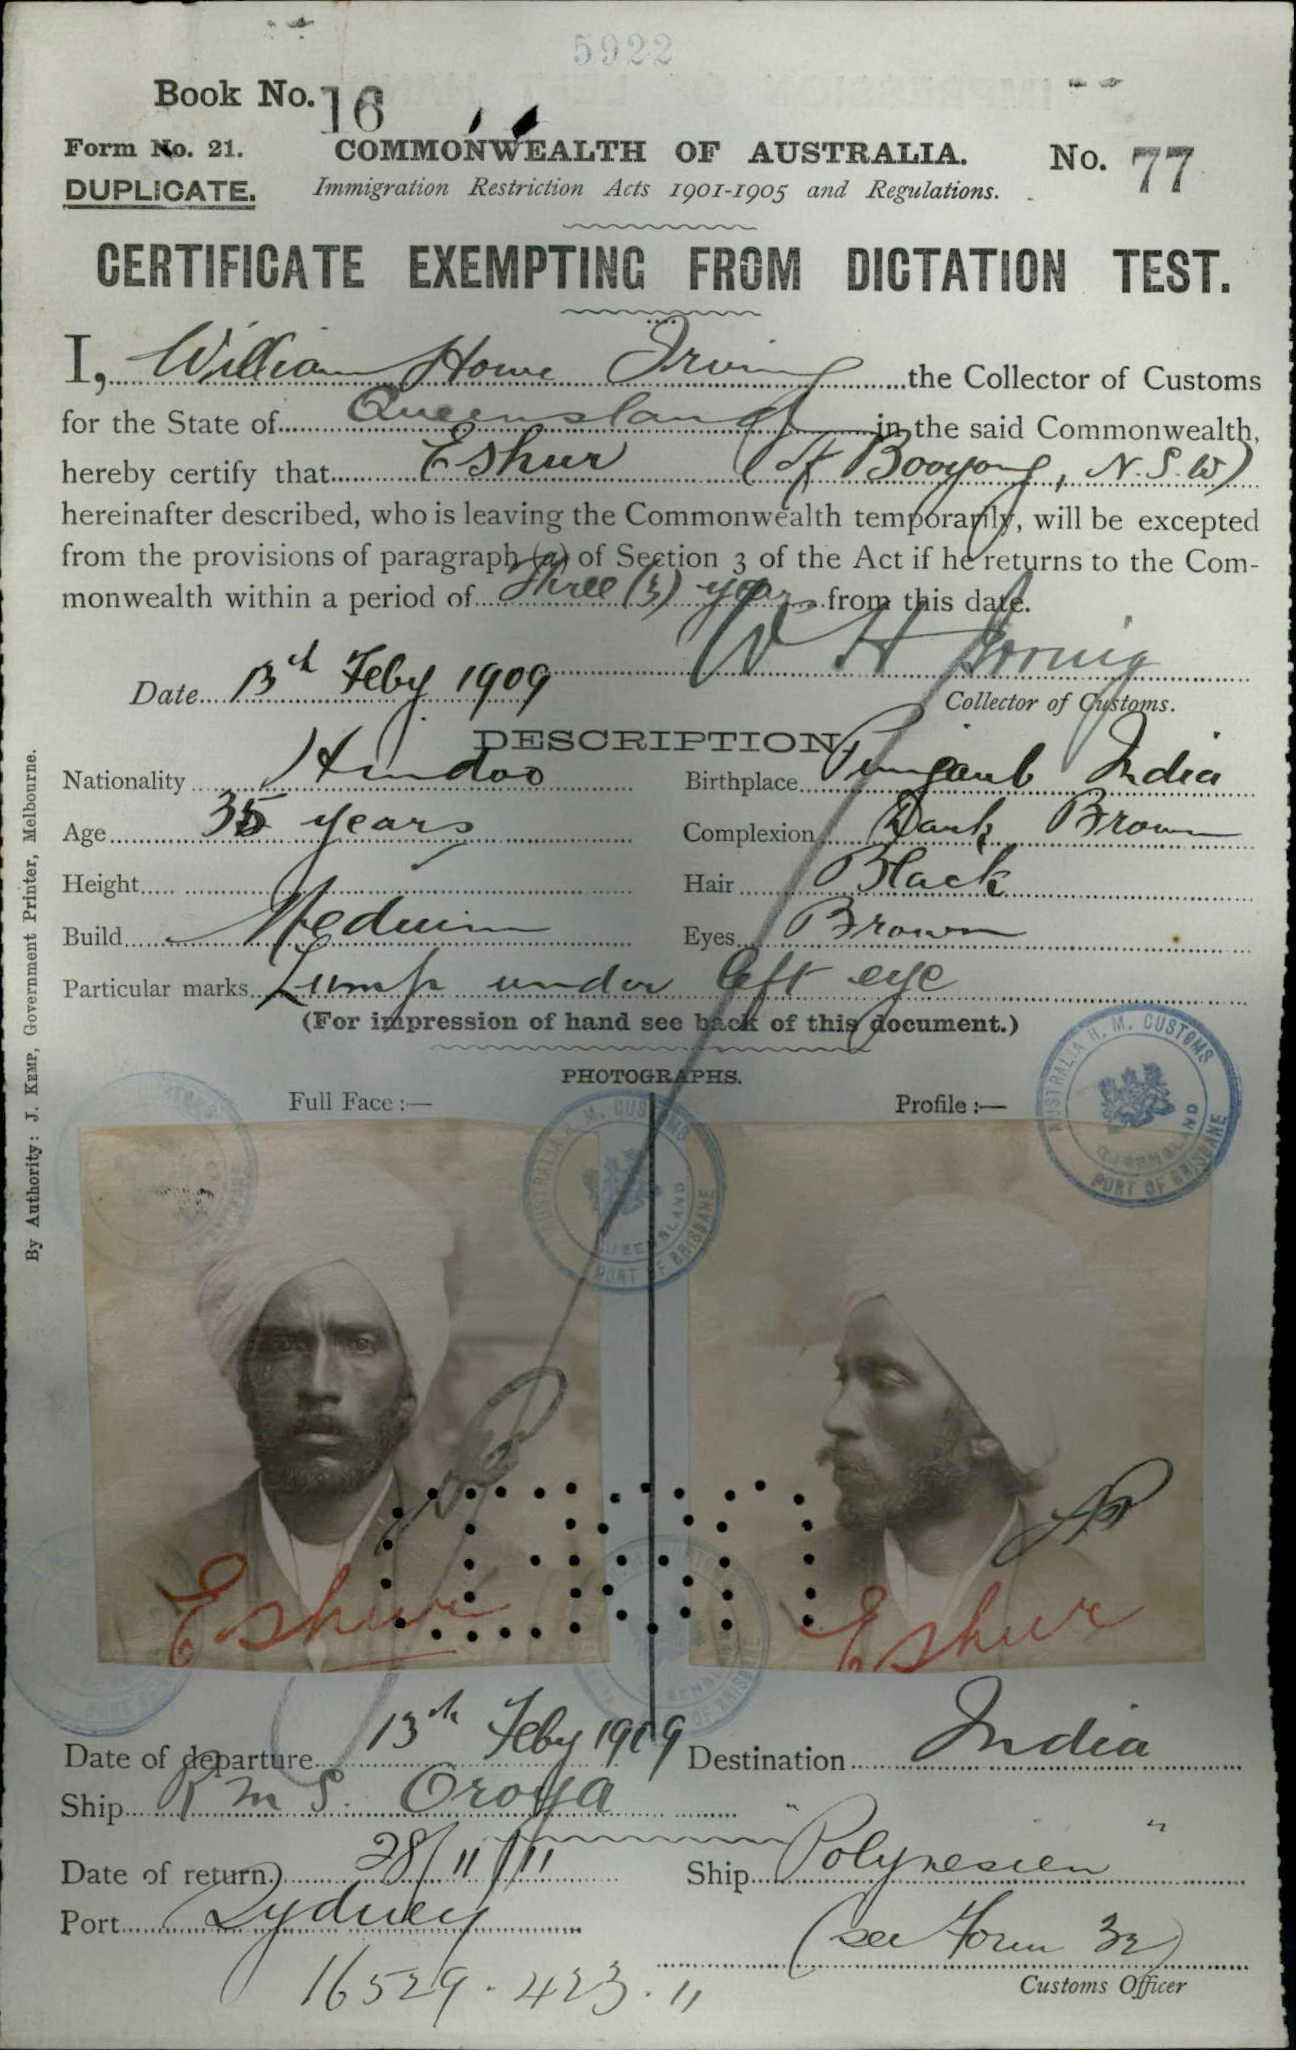 5922
Book No. 16
Form No. 21. COMMONWEALTH OF AUSTRALIA. No. 77
DUPLICATE. Immigration Restriction Acts 1901-1905 and Regulations.
CERTIFICATE EXEMPTING FROM DICTATION TEST.
I, William Howe Irving the Collector of Customs
for the State of Queensland in the said Commonwealth,
hereby certify that Eshur (of Booyong, N.S.W)
hereinafter described, who is leaving the Commonwealth temporarily, will be excepted
from the provisions of paragraph (a) of Section 3 of the Act if he returns to the Com-
monwealth within a period of Three (3) years from this date.
W H Irving
Date 13th Feby 1909 Collector of Customs.
DESCRIPTION.
Nationality Hindoo Birthplace Punjaub India
Age 35 years Complexion Dark Brown
Height Hair Black
Build Medium Eyes Brown
Particular marks Lump under left eye
(For impression of hand see back of this document.)
PHOTOGRAPHS.
Full Face :— Profile :—
AUSTRALIA H. M. CUSTOMS QUEENSLAND PORT OF BRISBANE
AUSTRALIA H. M. CUSTOMS QUEENSLAND PORT OF BRISBANE
Eshur Eshur
Date of departure 13th Feby 1909 Destination India
Ship R M S. Oroya
Date of return 28/11/11 Ship "Polynesien"
Port Sydney (see Form 32)
Customs Officer
16529.423.11
By Authority: J. KEMP, Government Printer, Melbourne.